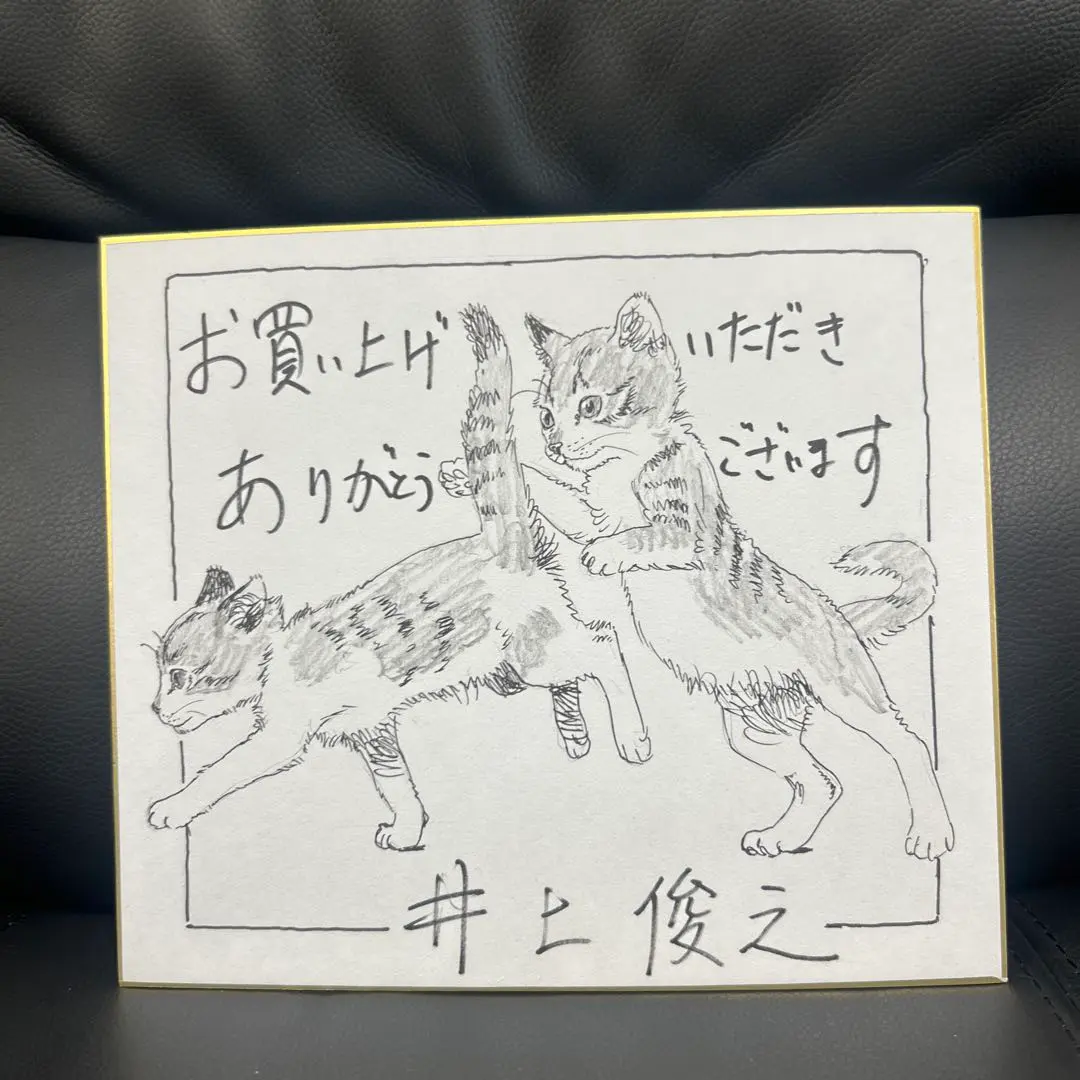 お買い上げいただき
ありがとうございます
井上俊之